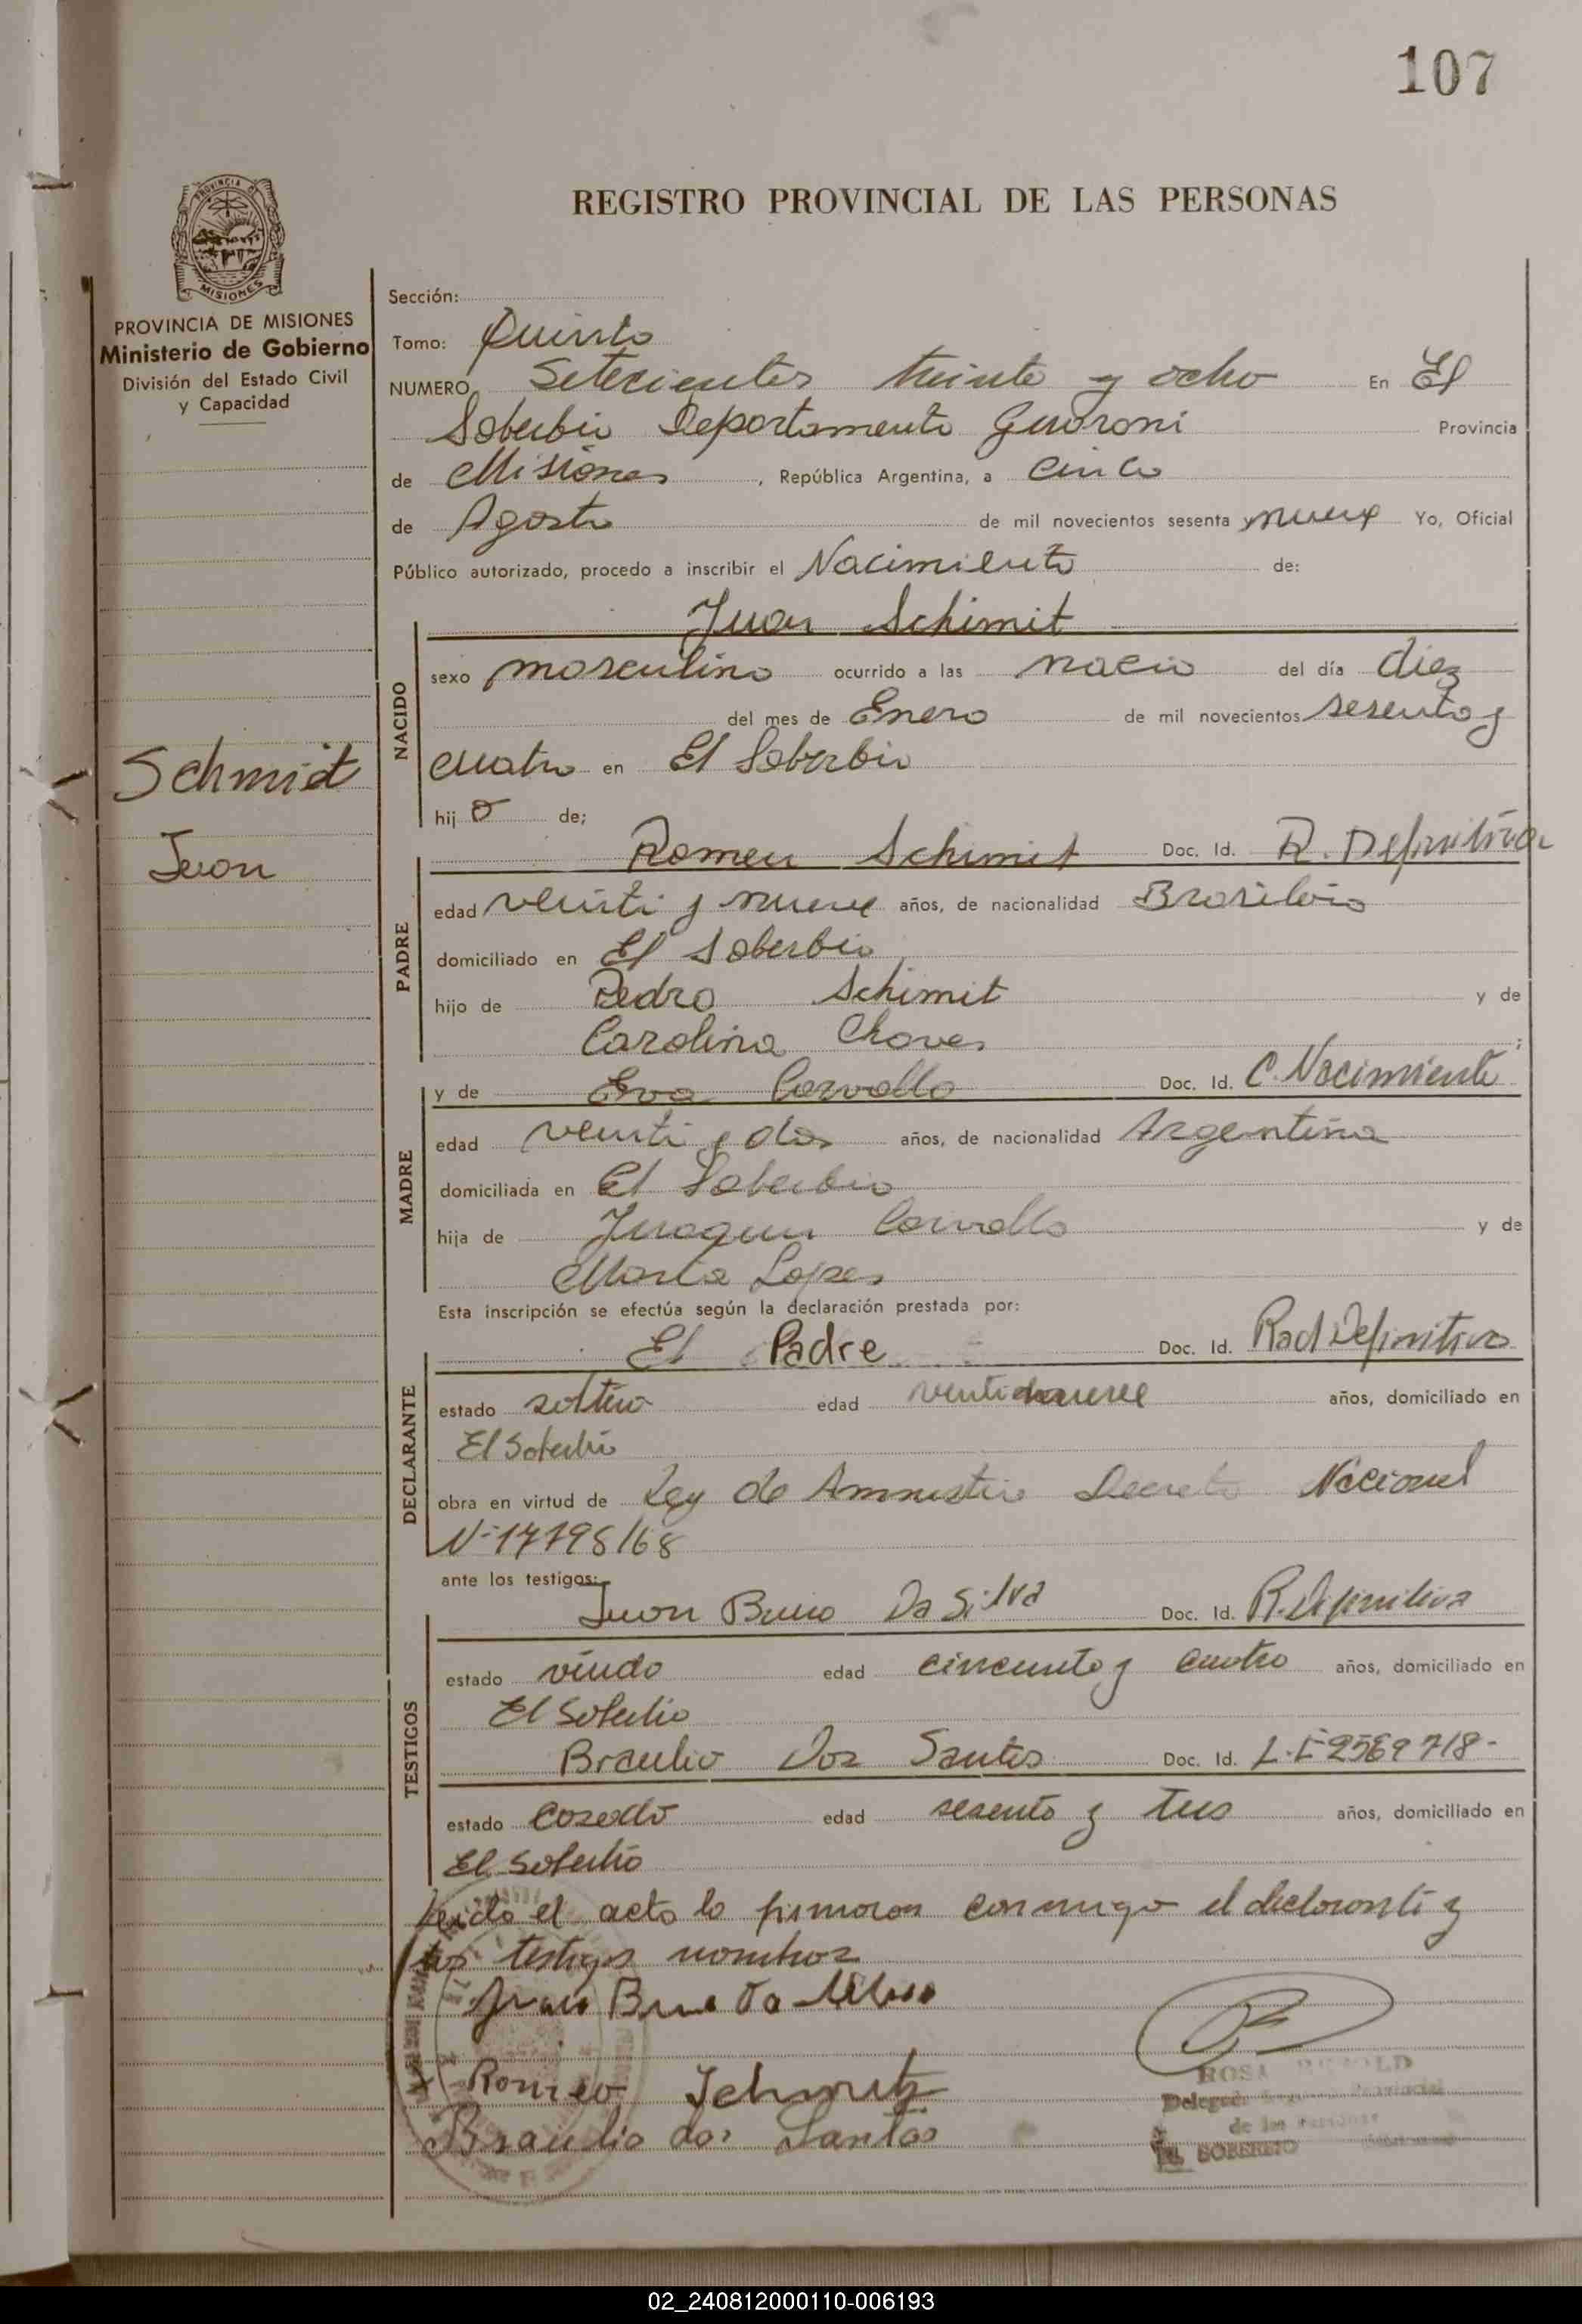 107
REGISTRO PROVINCIAL DE LAS PERSONAS
PROVINCIA DE
MISIONES
PROVINCIA DE MISIONES
Ministerio de Gobierno
División del Estado Civil
y Capacidad
Sección:
Tomo: Quinto
NUMERO Setecientos treinta y ocho En El
Soberbio Departamento Guaroni Provincia
de Misiones, República Argentina, a Cinco
de Agosto de mil novecientos sesenta y nueve Yo, Oficial
Público autorizado, procedo a inscribir el Nacimiento de:
Juan Schimit
NACIDO
sexo masculino ocurrido a las nacio del día diez
del mes de Enero de mil novecientos sesenta y
cuatro en El Soberbio
hijo de;
Schmidt
Juan
PADRE
Romeu Schimit Doc. Id. R. Definitiva
edad veinti y nueve años, de nacionalidad Brasileño
domiciliado en El Soberbio
hijo de Pedro Schimit y de
Carolina Chaves;
MADRE
y de Eva Carvallo Doc. Id. C. Nacimiento
edad veinti y dos años, de nacionalidad Argentina
domiciliada en El Soberbio
hija de Juaquin Carvallo y de
Maria Lopes
Esta inscripción se efectúa según la declaración prestada por:
DECLARANTE
El Padre Doc. Id. Rad Definitiva
estado soltero edad años, domiciliado en
El Soberbio
obra en virtud de Ley de Amnistia Decreto Nacional
Nº 17798/68
ante los testigos:
TESTIGOS
Juan Bruno Da Silva Doc. Id. R. Definitiva
estado viudo edad cincuenta y cuatro años, domiciliado en
El Soberbio
Braulio Dos Santos Doc. Id. L.E 2569718-
estado casado edad sesenta y tres años, domiciliado en
El Soberbio
Leida el acta la firmaron conmigo el declarante y
los testigos
Romeo Schmitz
Braulio dos Santos
ROSA
de las Personas
EL SOBERBIO
02_240812000110-006193